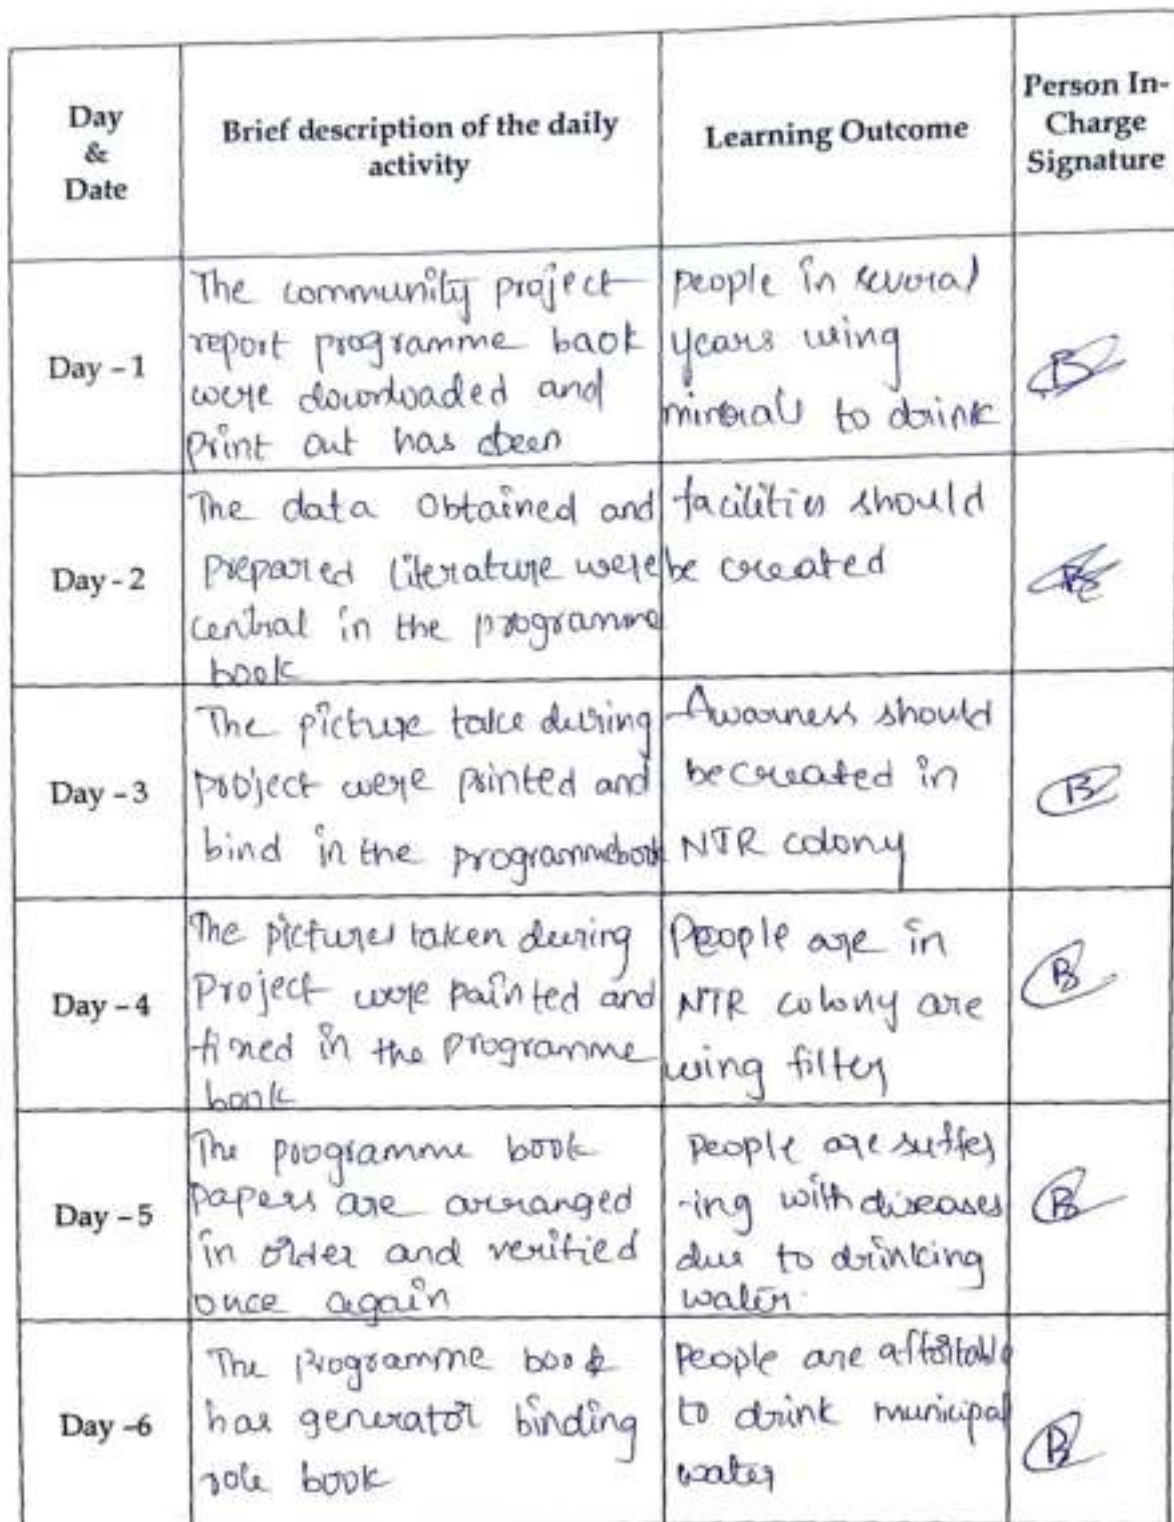 Day
&
Date
Brief description of the daily
activity
Learning Outcome
Person In-
Charge
Signature
Day - 1
The community project
report programme baok
were downloaded and
print out has been
people in several
years using
minerals to drink
Day - 2
The data Obtained and
prepared literature were
central in the programme
book
facilities should
be created
Day - 3
The picture take during
project were printed and
bind in the programmebook
Awarness should
be created in
NTR colony
Day - 4
The pictures taken during
Project were painted and
fixed in the programme
book
People are in
NTR colony are
using filter
Day - 5
The programme book
papers are arranged
in order and verified
once again
People are suffer
-ing with diseases
due to drinking
water.
Day -6
The programme book
has generator binding
role book
People are affortable
to drink municipal
water